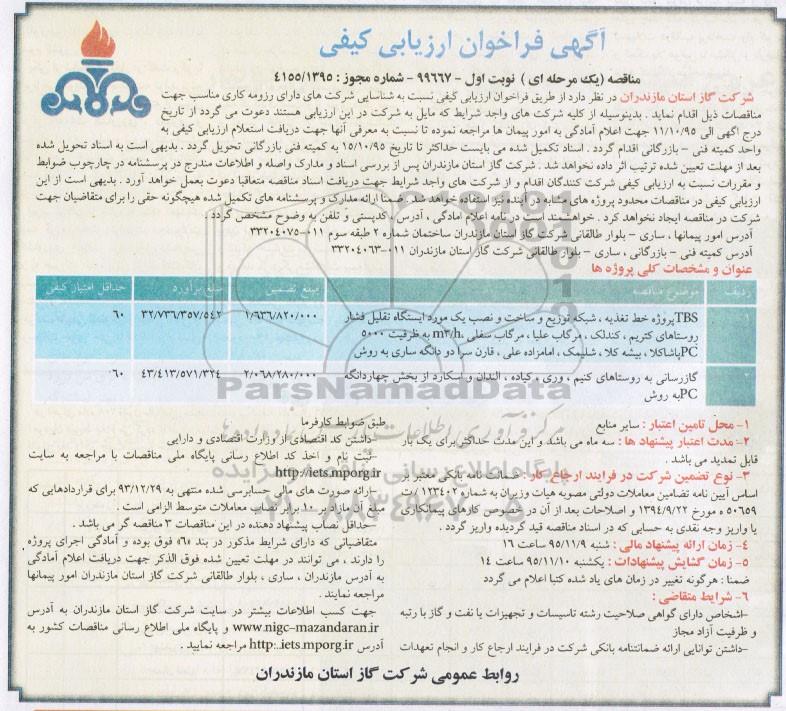 آگهی فراخوان ارزیابی کیفی
مناقصه (یک مرحله ای ) نوبت اول - ۹۹۶۶۷ - شماره مجوز : ۴۱۵۵/۱۳۹۵
شرکت گاز استان مازندران در نظر دارد از طریق فراخوان ارزیابی کیفی نسبت به شناسایی شرکت های دارای رزومه کاری مناسب جهت
مناقصات ذیل اقدام نماید . بدینوسیله از کلیه شرکت های واجد شرایط که مایل به شرکت در این ارزیابی هستند دعوت می گردد از تاریخ
درج آگهی الی ۱۱/۱۰/۹۵ جهت اعلام آمادگی به امور پیمان ها مراجعه نموده تا نسبت به معرفی آنها جهت دریافت استعلام ارزیابی کیفی به
واحد کمیته فنی - بازرگانی اقدام گردد . اسناد تکمیل شده می بایست حداکثر تا تاریخ ۱۵/۱۰/۹۵ به کمیته فنی بازرگانی تحویل گردد . بدیهی است به اسناد تحویل شده
بعد از مهلت تعیین شده ترتیب اثر داده نخواهد شد . شرکت گاز استان مازندران پس از بررسی اسناد و مدارک واصله و اطلاعات مندرج در پرسشنامه در چارچوب ضوابط
و مقررات نسبت به ارزیابی کیفی شرکت کنندگان اقدام و از شرکت های واجد شرایط جهت دریافت اسناد مناقصه متعاقبا دعوت بعمل خواهد آورد . بدیهی است از این
ارزیابی کیفی در مناقصات محدود پروژه های مشابه در آینده نیز استفاده خواهد شد . ضمنا ارائه مدارک و پرسشنامه های تکمیل شده هیچگونه حقی را برای متقاضیان جهت
شرکت در مناقصه ایجاد نخواهد کرد . خواهشمند است در نامه اعلام آمادگی ، آدرس ، کدپستی و تلفن به وضوح مشخص گردد .
آدرس امور پیمانها ، ساری - بلوار طالقانی شرکت گاز استان مازندران ساختمان شماره ۲ طبقه سوم ۰۱۱-۳۳۲۰۴۰۷۵
آدرس کمیته فنی - بازرگانی ، ساری - بلوار طالقانی شرکت گاز استان مازندران ۰۱۱-۳۳۲۰۴۰۶۳
عنوان و مشخصات کلی پروژه ها
ردیف موضوع مناقصه مبلغ تضمین مبلغ برآورد حداقل امتیاز کیفی
۱ TBSپروژه خط تغذیه ، شبکه توزیع و ساخت و نصب یک مورد ایستگاه تقلیل فشار ۱/۶۳۶/۸۲۰/۰۰۰ ۳۲/۷۳۶/۳۵۷/۵۴۲ ۶۰
روستاهای کتریم ، کندلک ، مرگاب علیا ، مرگاب سفلی ،m۳/h به ظرفیت ۵۰۰۰
PCپاشاکلا ، بیشه کلا ، شلیمک ، امامزاده علی ، قارن سرا دو دانگه ساری به روش
۲ گازرسانی به روستاهای کنیم ، وری ، کیاده ، الندان و اسکارد از بخش چهاردانگه ۲/۰۶۸/۲۸۰/۰۰۰ ۴۳/۴۱۳/۵۷۱/۳۲۴ ۶۰
PCبه روش
۱- محل تامین اعتبار : سایر منابع
۲- مدت اعتبار پیشنهاد ها : سه ماه می باشد و این مدت حداکثر برای یک بار
قابل تمدید می باشد .
۳- نوع تضمین شرکت در فرایند ارجاع کار : ضمانت نامه بانکی معتبر بر
اساس آیین نامه تضامین معاملات دولتی مصوبه هیات وزیران به شماره ۱۲۳۴۰۲ت
۵۰۶۵۹ ه مورخ ۱۳۹۴/۹/۲۲ و اصلاحات بعد از آن در خصوص کارهای پیمانکاری
یا واریز وجه نقدی به حسابی که در اسناد مناقصه قید گردیده واریز گردد .
۴- زمان ارائه پیشنهاد مالی : شنبه ۹۵/۱۱/۹ ساعت ۱۶
۵- زمان گشایش پیشنهادات : یکشنبه ۹۵/۱۱/۱۰ ساعت ۱۴
ضمنا : هرگونه تغییر در زمان های یاد شده کتبا اعلام می گردد
۶- شرایط متقاضی :
-اشخاص دارای گواهی صلاحیت رشته تاسیسات و تجهیزات یا نفت و گاز با رتبه
و ظرفیت آزاد مجاز
-داشتن توانایی ارائه ضمانتنامه بانکی شرکت در فرایند ارجاع کار و انجام تعهدات
طبق ضوابط کارفرما
-داشتن کد اقتصادی از وزارت اقتصادی و دارایی
-ثبت نام و اخذ کد اطلاع رسانی پایگاه ملی مناقصات با مراجعه به سایت
http://iets.mporg.ir
-ارائه صورت های مالی حسابرسی شده منتهی به ۹۳/۱۲/۲۹ برای قراردادهایی که
مبلغ آن مازاد بر ۱۰ برابر نصاب معاملات متوسط الزامی است .
-حداقل نصاب پیشنهاد دهنده در این مناقصات ۳ مناقصه گر می باشد .
متقاضیانی که دارای شرایط مذکور در بند «۶» فوق بوده و آمادگی اجرای پروژه
را دارند ، می توانند در مهلت تعیین شده فوق الذکر جهت دریافت اعلام آمادگی
به آدرس مازندران ، ساری ، بلوار طالقانی شرکت گاز استان مازندران امور پیمانها
مراجعه نمایند .
جهت کسب اطلاعات بیشتر در سایت شرکت گاز استان مازندران به آدرس
www.nigc-mazandaran.ir و پایگاه ملی اطلاع رسانی مناقصات کشور به
آدرس http:..iets.mporg.ir مراجعه نمایید .
روابط عمومی شرکت گاز استان مازندران
ParsNamadData